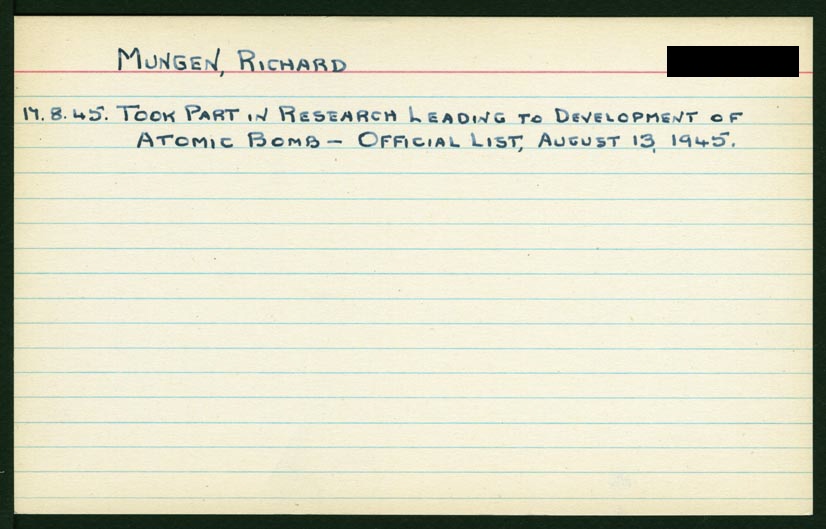 MUNGEN, RICHARD
17.8.45. TOOK PART IN RESEARCH LEADING TO DEVELOPMENT OF
ATOMIC BOMB – OFFICIAL LIST, AUGUST 13, 1945.